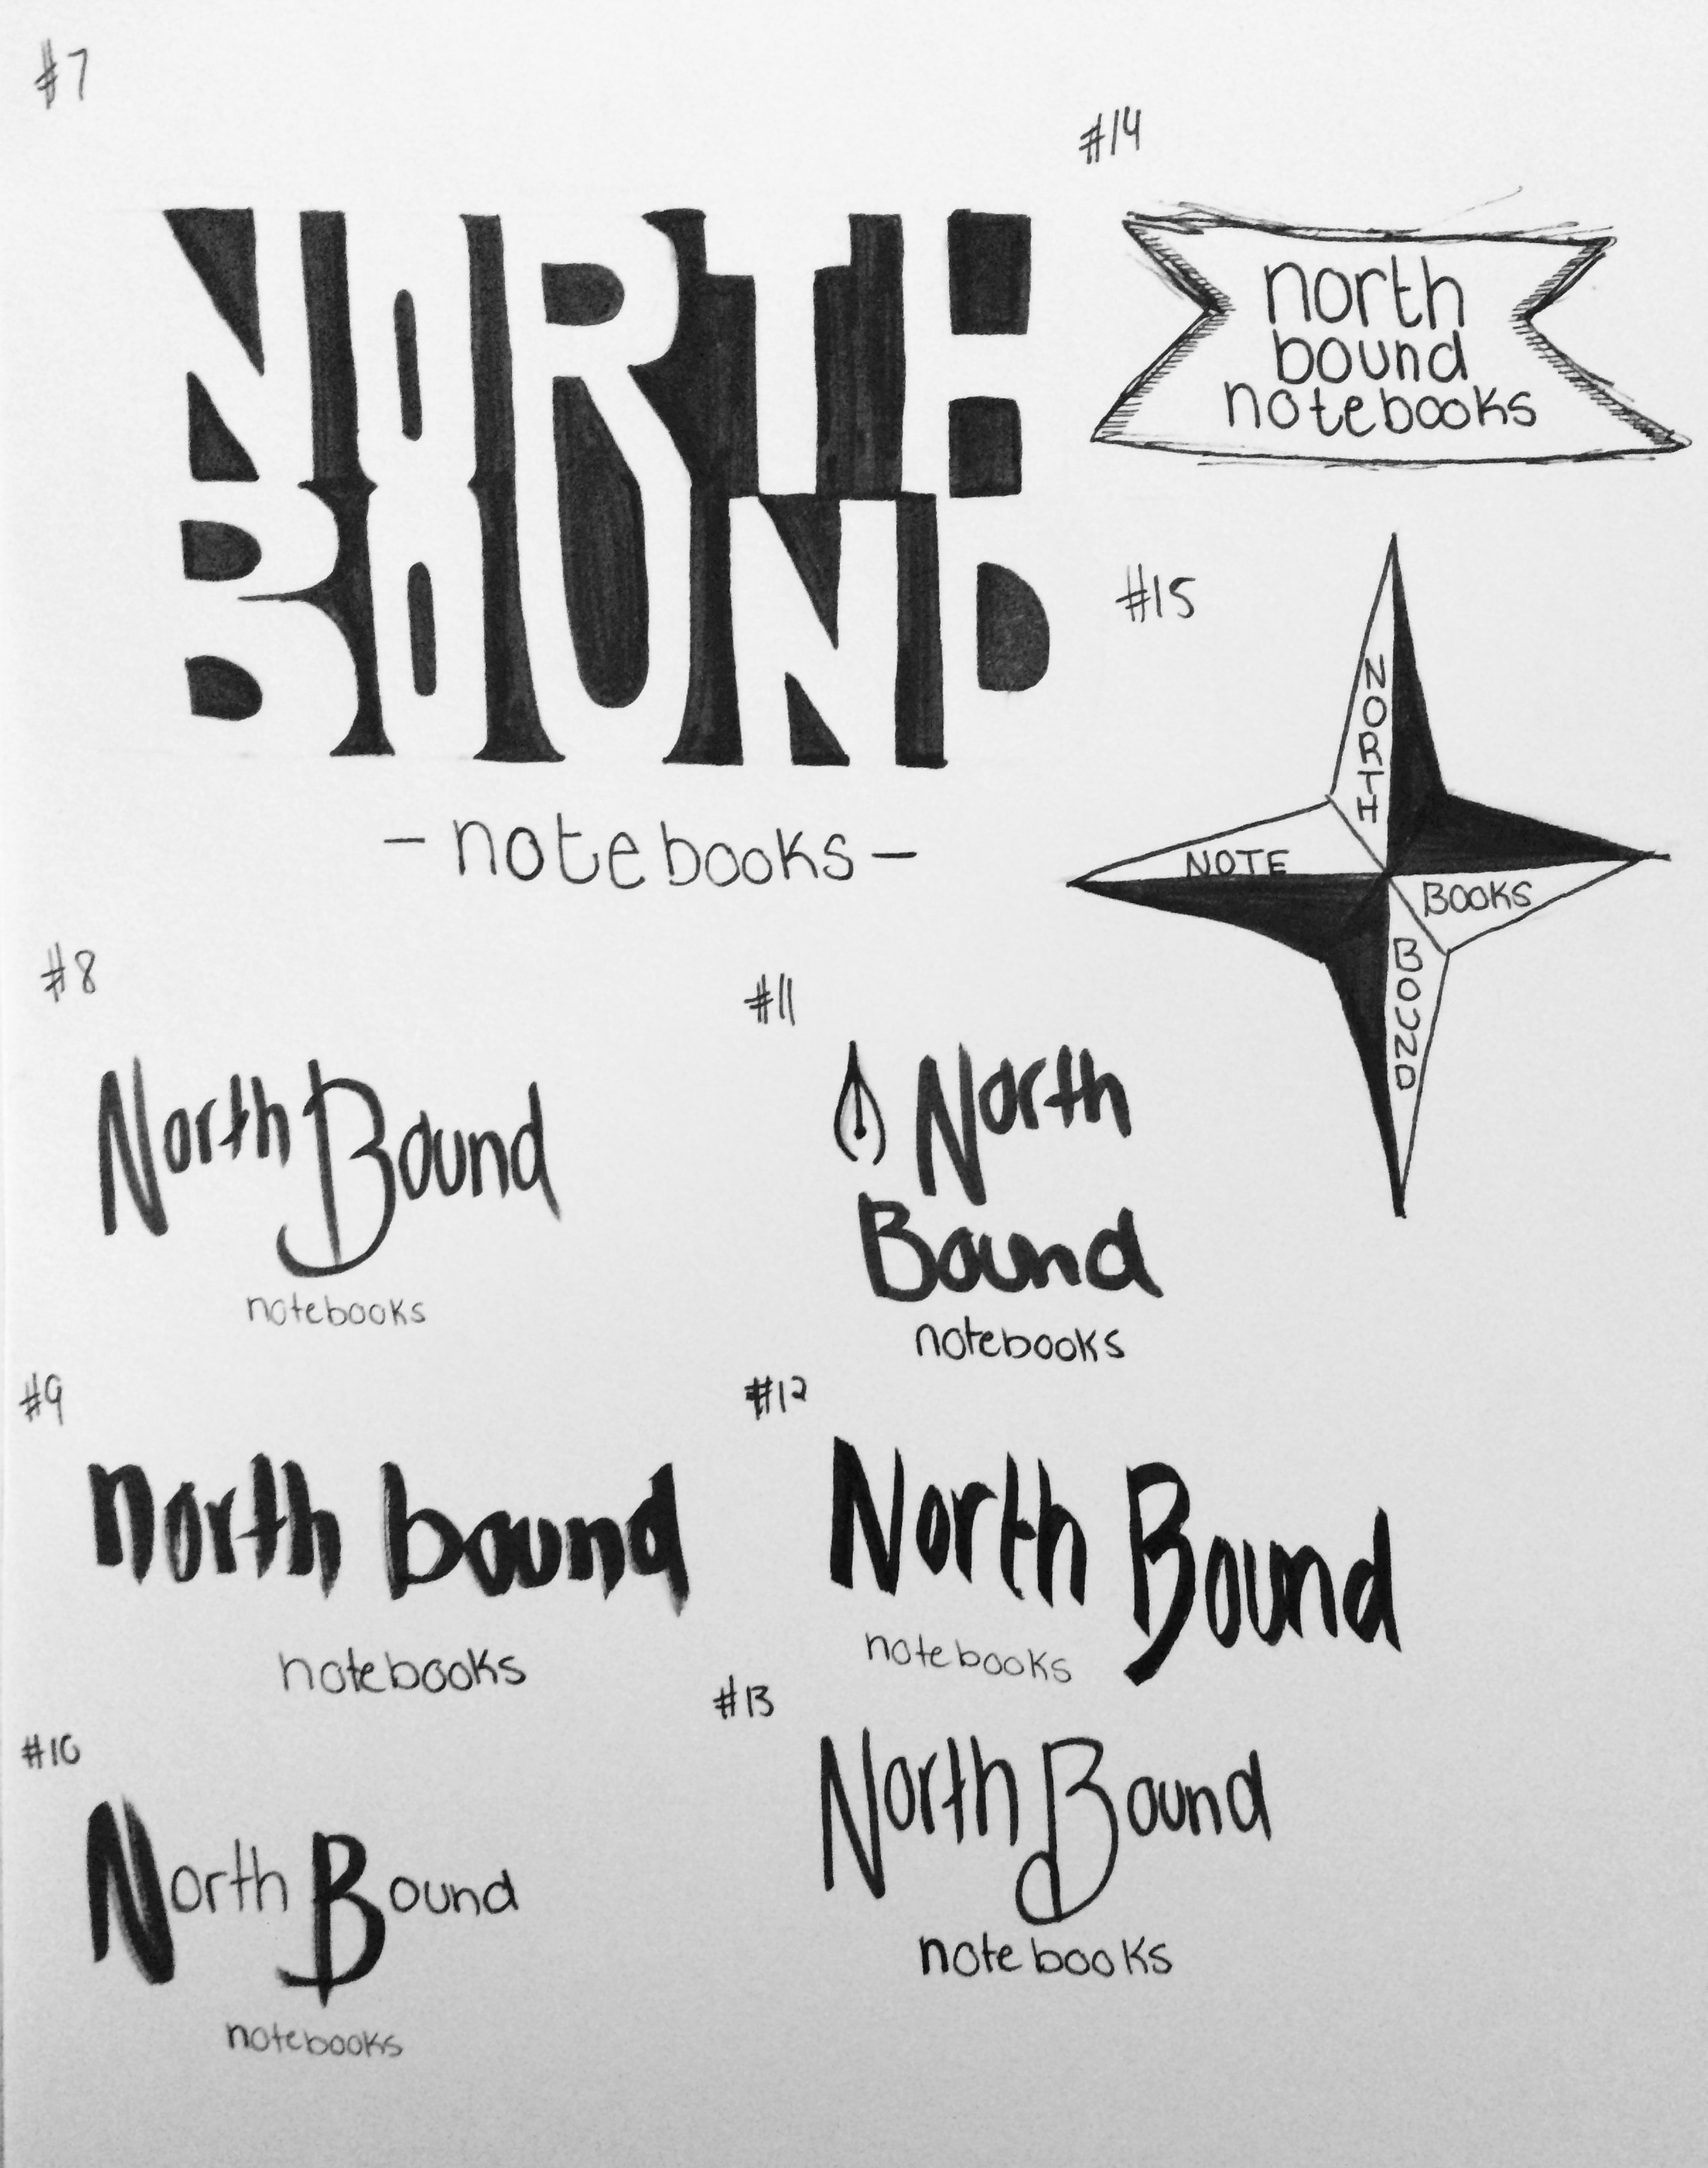 #7
NORTH
BOUND
- notebooks -
#14
north
bound
notebooks
#15
NORTH
NOTE
BOOKS
BOUND
#8
North Bound
notebooks
#11
North
Bound
notebooks
#9
north bound
notebooks
#12
North Bound
notebooks
#10
North Bound
notebooks
#13
North Bound
notebooks